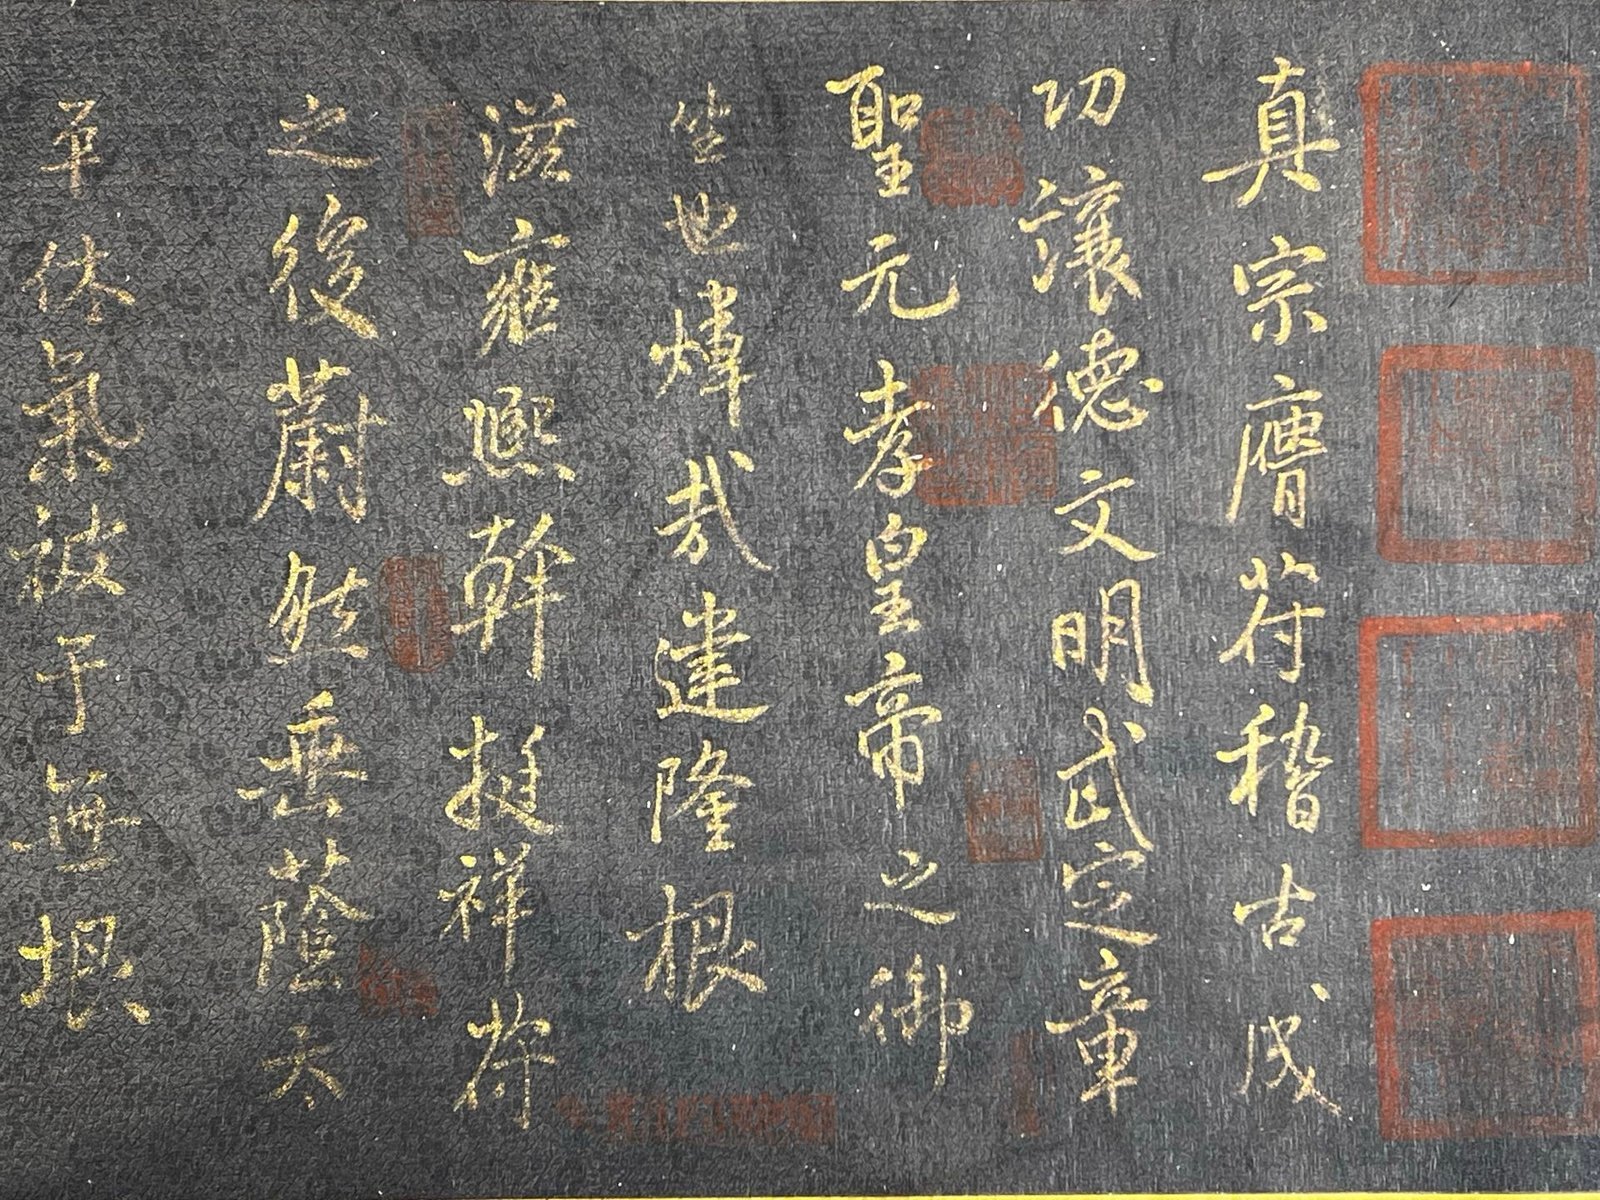 真宗膺符稽古成
功讓德文明武定章
聖元孝皇帝之御
坐也煒哉建隆根
滋雍熙幹挺祥符
之後蔚然垂蔭太
平休氣被于無垠